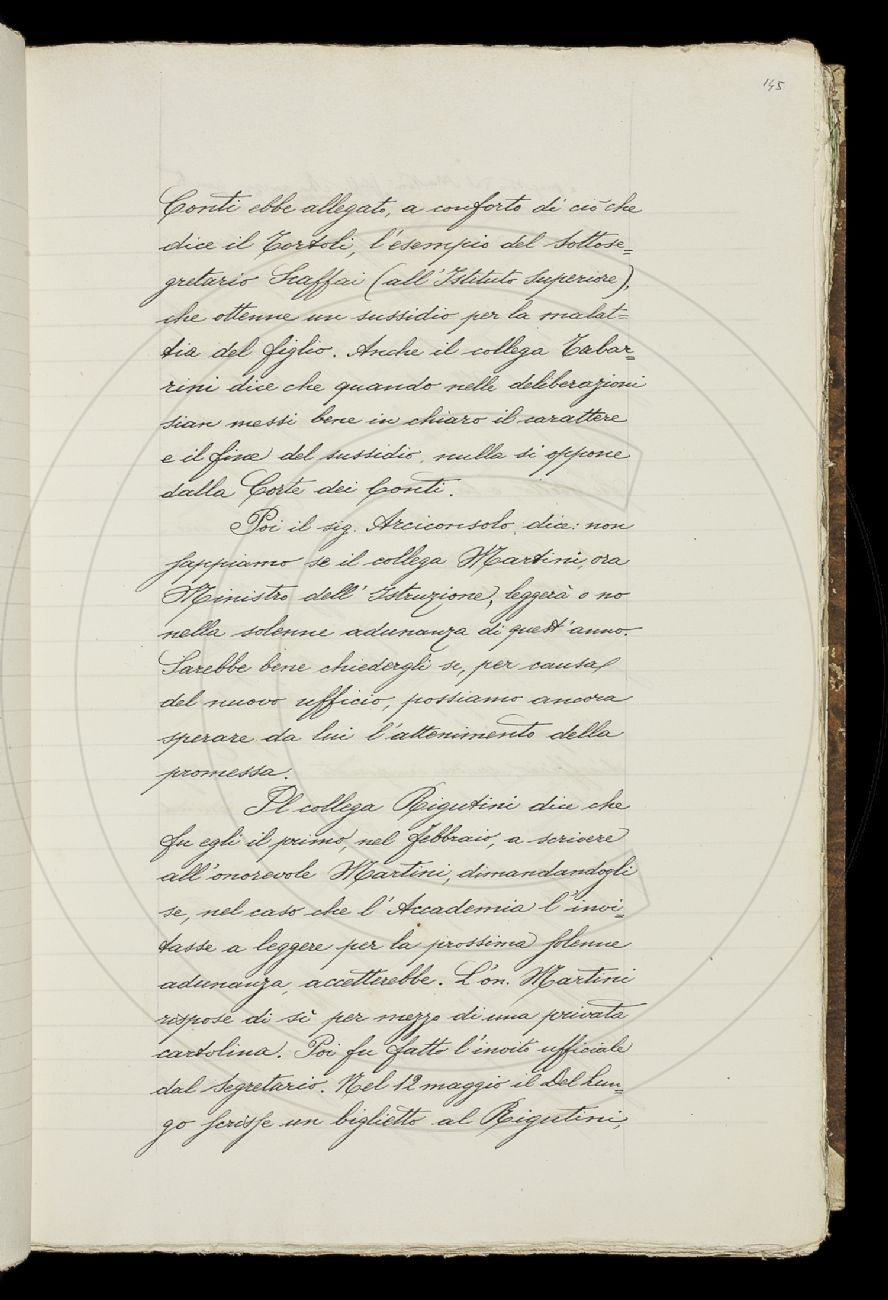 145
Conti ebbe allegato, a conforto di ciò che
dice il Tortoli, l'esempio del sottose=
gretario Scaffai (all'Istituto Superiore),
che ottenne un sussidio per la malat=
tia del figlio. Anche il collega Tabar=
rini dice che quando nelle deliberazioni
sian messi bene in chiaro il carattere
e il fine del sussidio, nulla si oppone
dalla Corte dei Conti.
Poi il sig. Arciconsolo dice: non
sappiamo se il collega Martini, ora
Ministro dell'Istruzione, leggerà o no
nella solenne adunanza di quest'anno.
Sarebbe bene chiedergli se, per causa
del nuovo ufficio, possiamo ancora
sperare da lui l'attenimento della
promessa.
Il collega Rigutini dice che
fu egli il primo, nel febbraio, a scrivere
all'onorevole Martini, dimandandogli
se, nel caso che l'Accademia l'invi=
tasse a leggere per la prossima solenne
adunanza, accetterebbe. L'on. Martini
rispose di sì per mezzo di una privata
cartolina. Poi fu fatto l'invito ufficiale
dal Segretario. Nel 12 maggio il Del Lun=
go scrisse un biglietto al Rigutini,